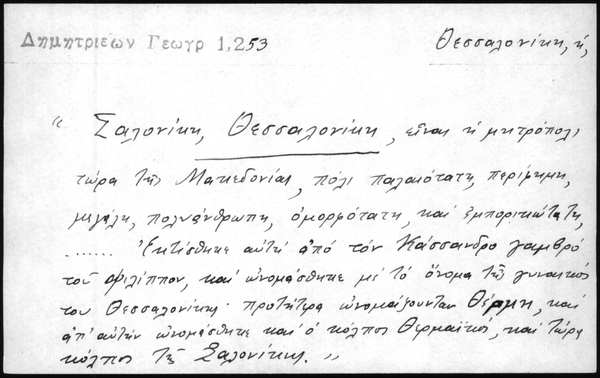 Δημητριεων Γεωγρ 1,253
Θεσσαλονίκη, ἡ,
“ Σαλονίκη, Θεσσαλονίκη, εἶναι ἡ μητρόπολι
τώρα τῆς Μακεδονίας, πόλι παλαιότατη, περίφημη,
μεγάλη, πολυάνθρωπη, ὀμορφότατη, καὶ ἐμπορικώτατη,
....... Ἐκτίσθηκε αὐτὴ ἀπὸ τὸν Κάσσανδρο γαμβρό
τοῦ Φιλίππου, καὶ ὠνομάσθηκε μὲ τὸ ὄνομα τῆς γυναικός
του Θεσσαλονίκης· προτήτερα ὠνομάζουνταν Θέρμη, καὶ
ἀπ' αὐτὴν ὠνομάσθηκε καὶ ὁ κόλπος Θερμαϊκος, καὶ τώρα
κόλπος τῆς Σαλονίκης. „